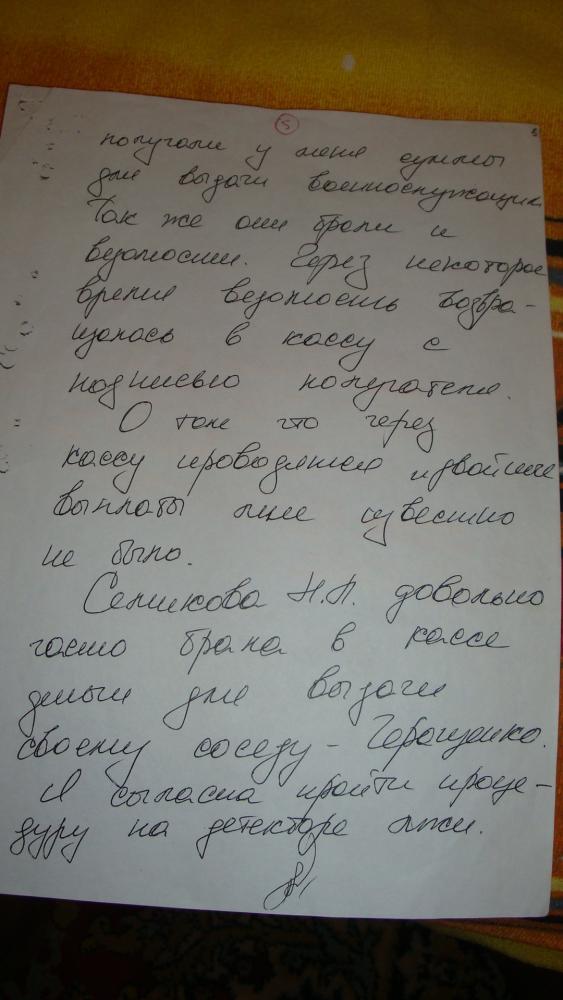 5
5
получали у меня суммы
для выдачи военнослужащим
Так же они брали и
ведомости. Через некоторое
время ведомость возвра-
щалась в кассу с
подписью получателя.
О том что через
кассу проводятся двойные
выплаты мне известно
не было.
Селикова Н.П. довольно
часто брала в кассе
деньги для выдачи
своему соседу - Геращенко.
Я согласна пройти проце-
дуру на детекторе лжи.